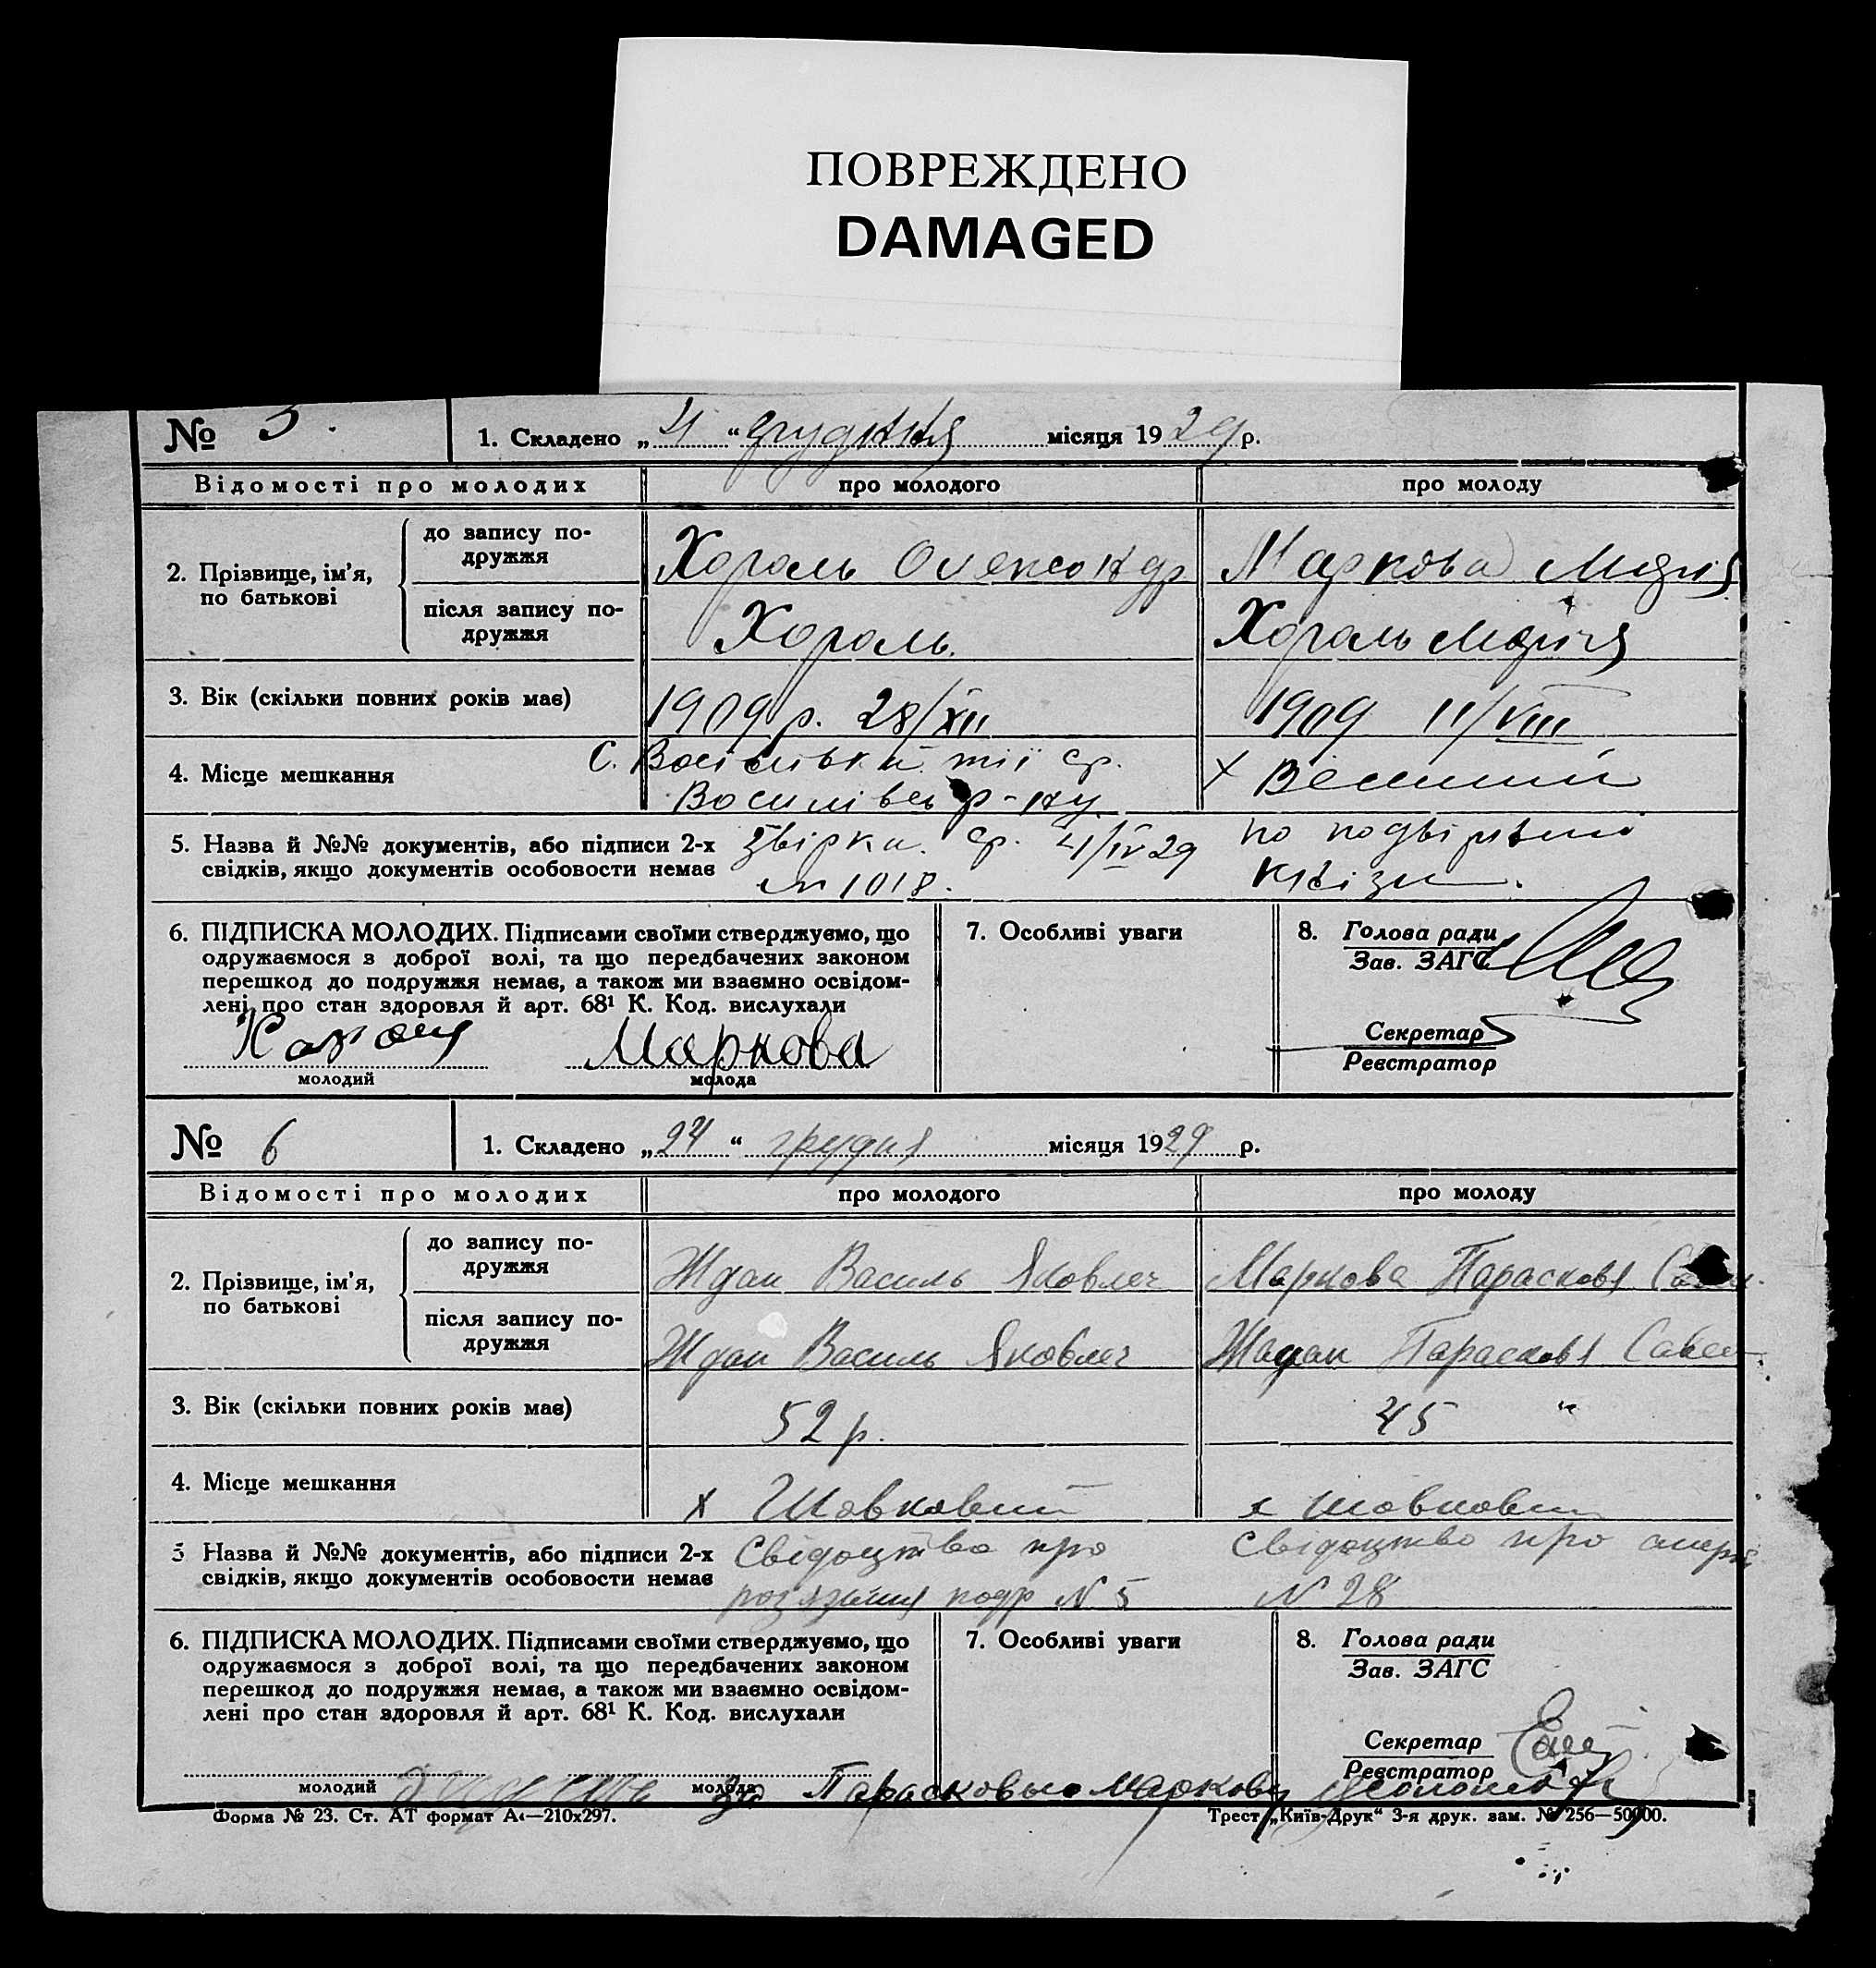 ПОВРЕЖДЕНО
DAMAGED
№ 5. 1. Складено „ 4 “ грудння місяця 1929 р.
Відомості про молодих про молодого про молоду
2. Прізвище, ім'я, по батькові
до запису подружжя Хороль Олександр Маркова Марія
після запису подружжя Хороль. Хороль Марія
3. Вік (скільки повних років має) 1909 р. 28/XII 1909 11/VIII
4. Місце мешкання С. ср. х Великий
р-ну
5. Назва й №№ документів, або підписи 2-х ср. 4/IV 29 по подвірній
свідків, якщо документів особовости немає № 1018. книзи.
6. ПІДПИСКА МОЛОДИХ. Підписами своїми стверджуємо, що
одружаємося з доброї волі, та що передбачених законом
перешкод до подружжя немає, а також ми взаємно освідом-
лені про стан здоровля й арт. 68¹ К. Код. вислухали
Маркова
молодий молода
7. Особливі уваги
8. Голова ради
Зав. ЗАГС
Секретар
Реєстратор
№ 6 1. Складено „ 24 “ грудня місяця 1929 р.
Відомості про молодих про молодого про молоду
2. Прізвище, ім'я, по батькові
до запису подружжя Ждан Василь Яковлеч Маркова Парасковя
після запису подружжя Ждан Василь Яковлеч Жадан Парасковя
3. Вік (скільки повних років має) 52 р. 45 "
4. Місце мешкання х Шовковий х Шовковий
5 Назва й №№ документів, або підписи 2-х Свідоцтво про Свідоцтво про смерть
свідків, якщо документів особовости немає подр N 5 N 28
6. ПІДПИСКА МОЛОДИХ. Підписами своїми стверджуємо, що
одружаємося з доброї волі, та що передбачених законом
перешкод до подружжя немає, а також ми взаємно освідом-
лені про стан здоровля й арт. 68¹ К. Код. вислухали
молодий молода За Парасковью Маркову
7. Особливі уваги
8. Голова ради
Зав. ЗАГС
Секретар
Реєстратор
Форма № 23. Ст. АТ формат А4—210х297. Трест „Київ-Друк“ 3-я друк. зам. № 256—50000.